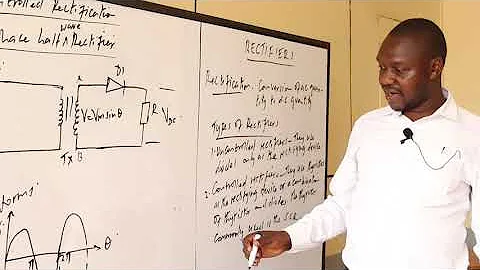 ntrolled Rectification
wave
Phase half ∧ Rectifier
A
D1
V=Vm sinθ
R
VDC
Tx
B
forms
π
2π
θ
RECTIFIERS
Rectification - Conversion of ac quan-
tity to dc quantity
Types of Rectifiers
1. Uncontrolled rectifiers - They use
diodes only as the rectifying device
2. Controlled rectifiers - They use thyristors
as the rectifying device or a combination
of thyristors and diodes. The thyristor
commonly used is the SCR